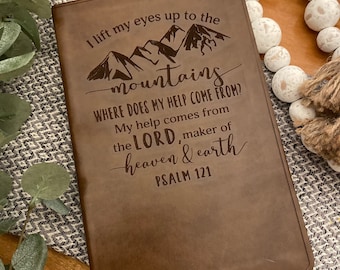 I lift my eyes up to the
mountains
WHERE DOES MY HELP COME FROM?
My help comes from
the LORD, maker of
heaven & earth
PSALM 121